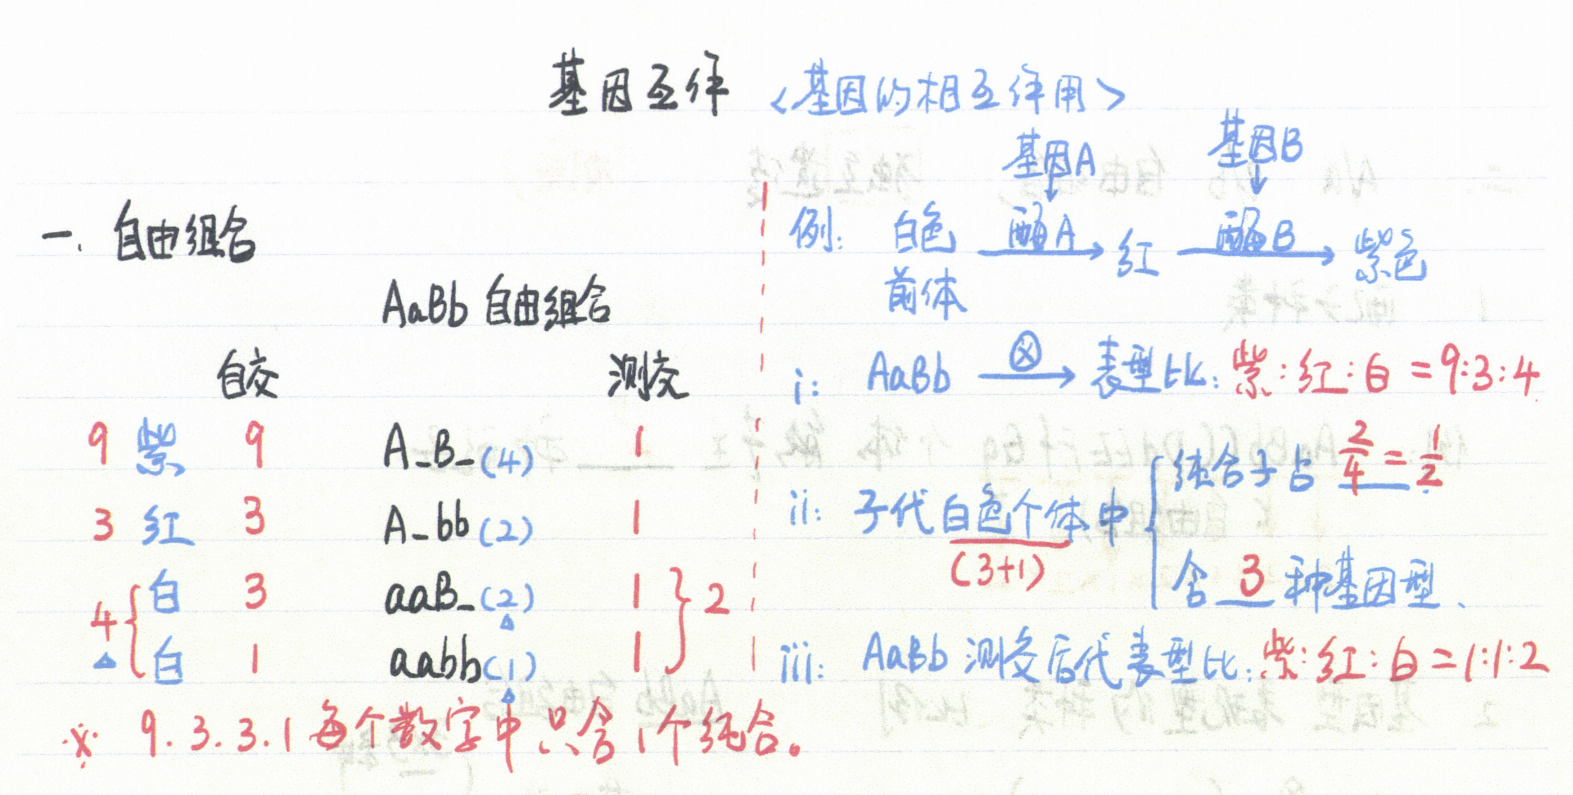 基因互作 <基因的相互作用>
一. 自由组合
AaBb 自由组合
自交 测交
9 紫 9 A_B_(4) 1
3 红 3 A_bb(2) 1
4{ 白 3 aaB_(2) 1 }2
白 1 aabb(1) 1
※ 9.3.3.1每个数字中只含1个纯合。
基因A 基因B
↓ ↓
例: 白色 酶A→ 红 酶B→ 紫色
前体
i: AaBb ⊗→ 表型比: 紫:红:白=9:3:4
ii: 子代白色个体中 { 纯合子占 2/4 = 1/2
(3+1)
含 3 种基因型.
iii: AaBb 测交后代表型比: 紫:红:白=1:1:2